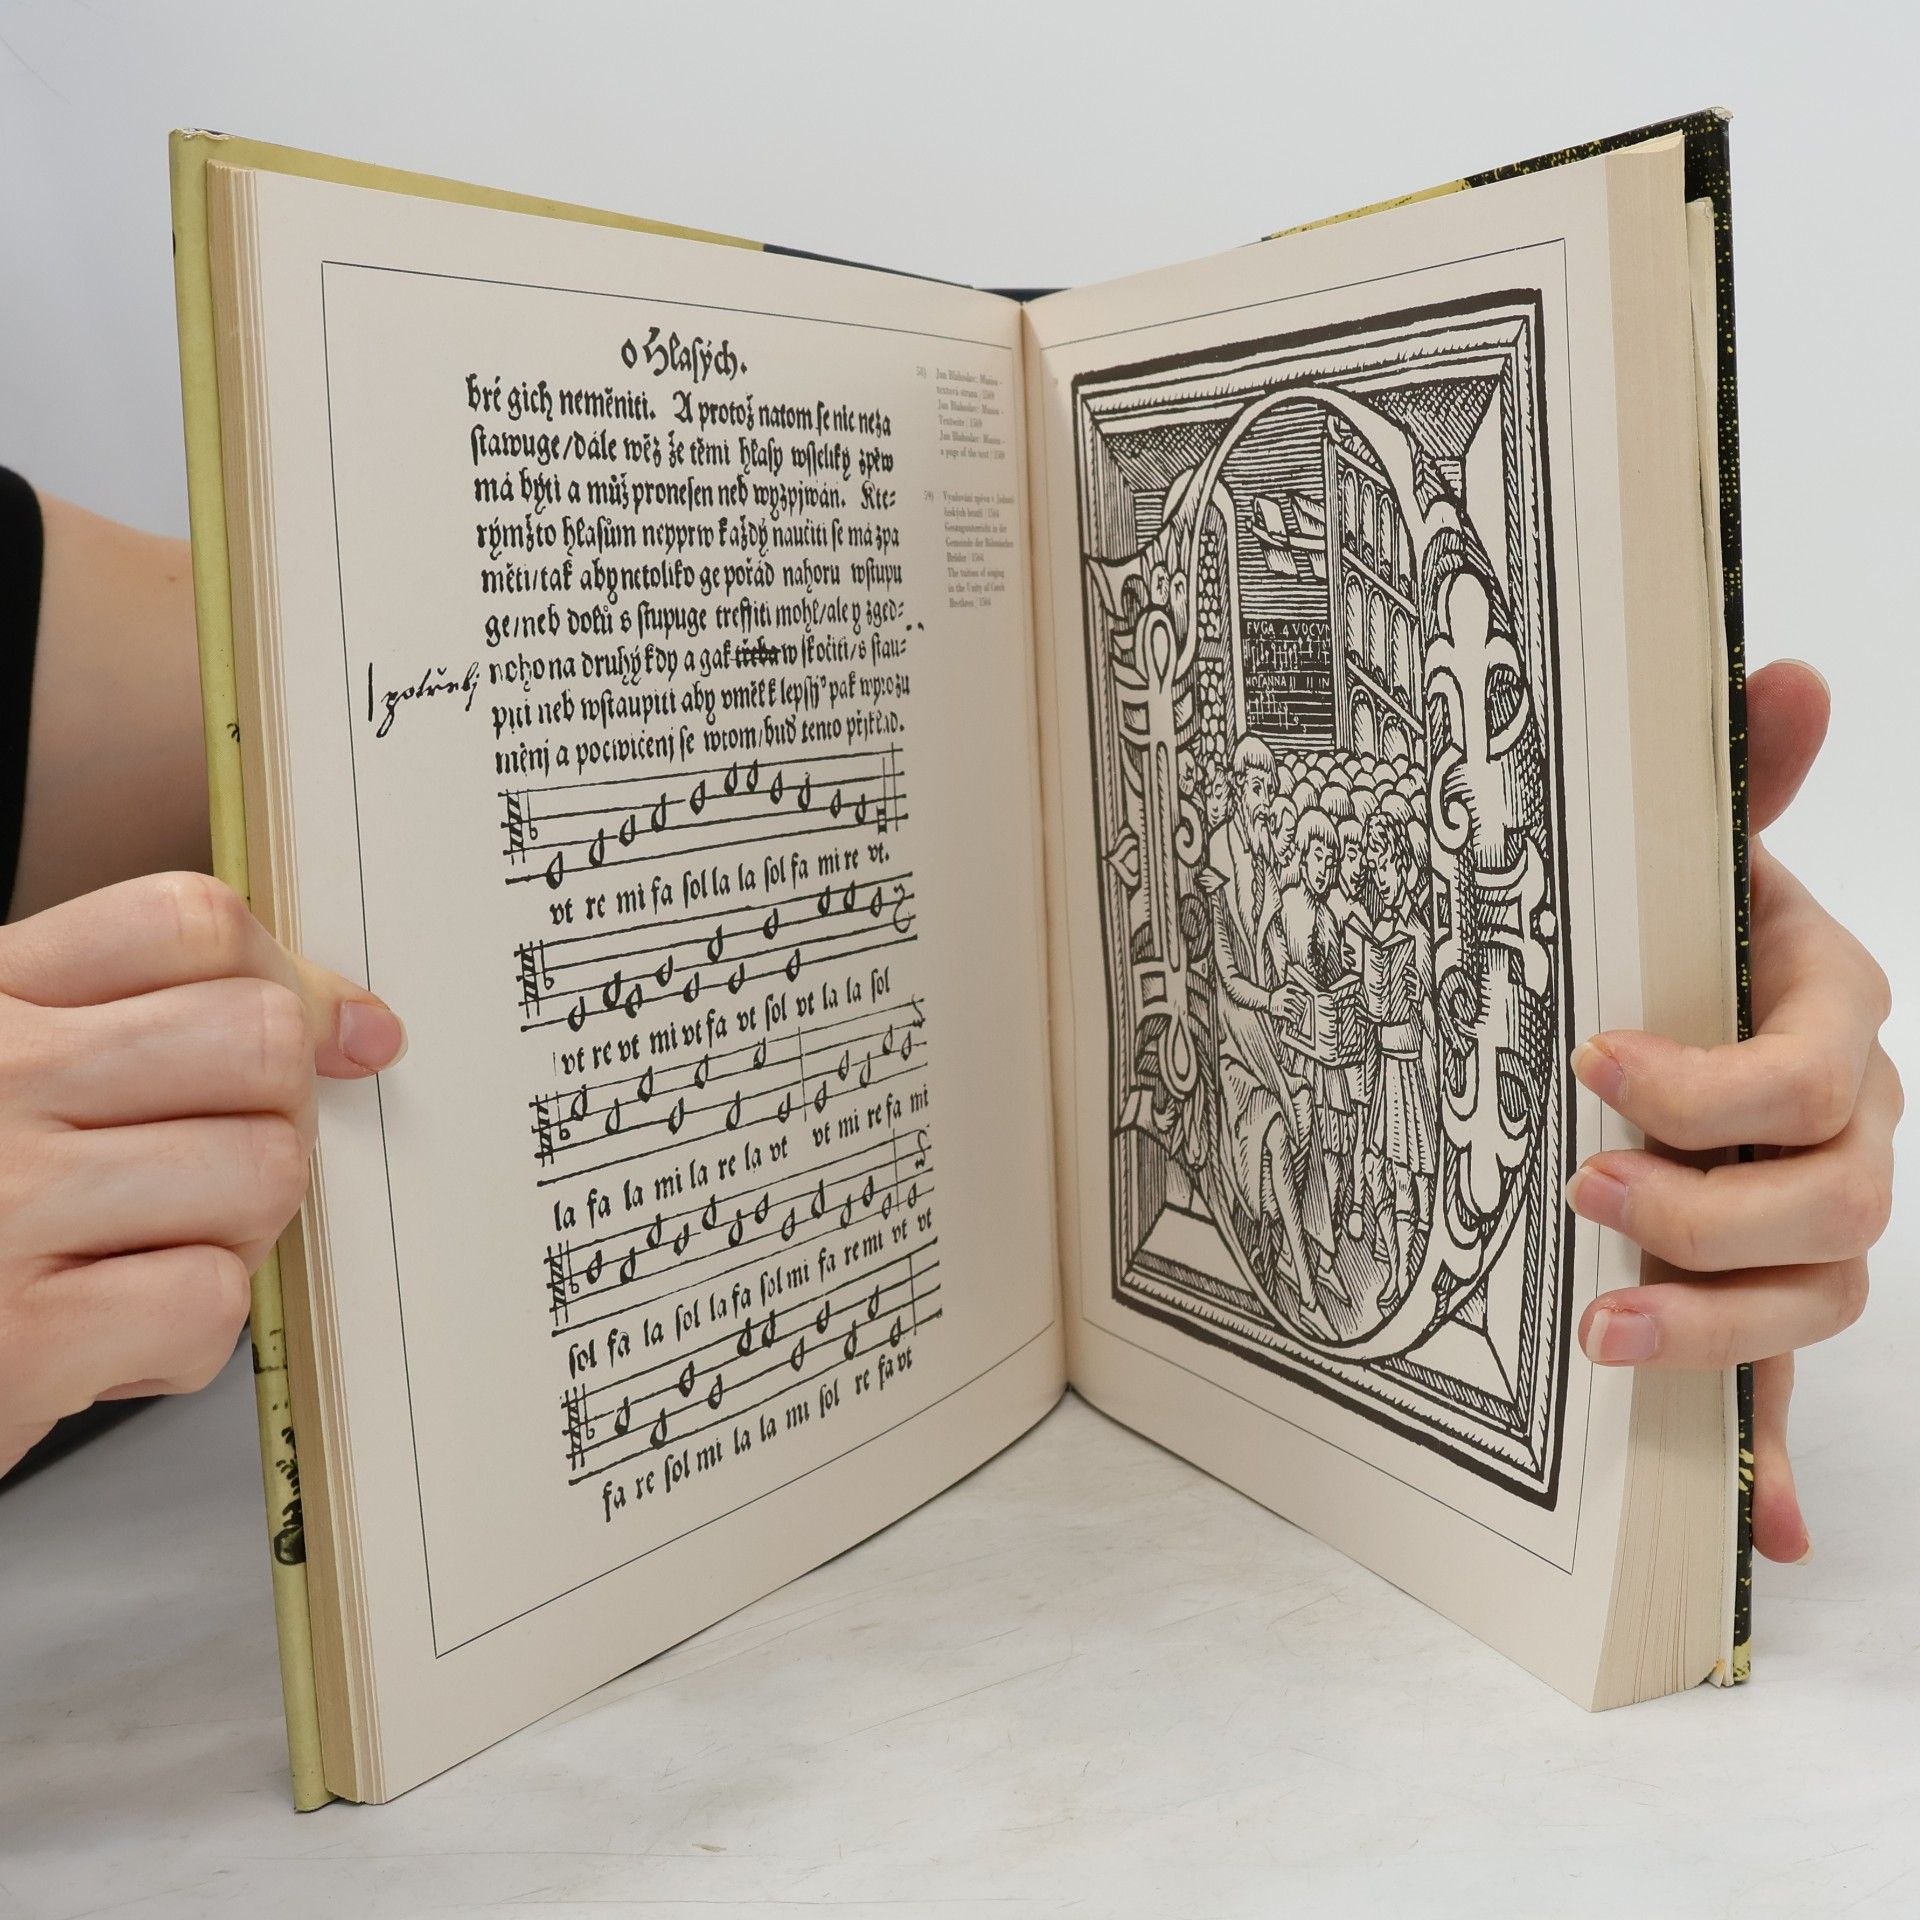 o Hlasých.
bré gich neměniti. A protož natom se nic neza
stawuge/dále wěz že těmi hlasy wsseliký zpěw
má býti a můž pronesen neb wyzpjwán. Kte=
rýmžto hlasům neyprw každý naučiti se má zpa
měti/tak aby netoliko ge pořád nahoru wstupu
ge/neb dolů s stupuge treffiti mohl/ale y zged=
noho na druhý kdy a gak třeba w skočiti/s stau=
potřebj
piti neb wstaupiti aby vměl k lepssj° pak wyrozu
měnj a pocwičenj se wtom/buď tento přjklad.
vt re mi fa sol la la sol fa mi re vt.
vt re vt mi vt fa vt sol vt la la sol
la fa la mi la re la vt vt mi re fa mi
sol fa la sol la fa sol mi fa re mi vt vt
fa re sol mi la la mi sol re fa vt
58) Jan Blahoslav: Musica -
textová strana | 1569
Jan Blahoslav: Musica -
Textseite | 1569
Jan Blahoslav: Musica -
a page of the text | 1569
59) Vyučování zpěvu v Jednotě
českých bratří | 1564
Gesangunterricht in der
Gemeinde der Böhmischen
Brüder | 1564
The tuition of singing
in the Unity of Czech
Brethren | 1564
FVGA 4 VOCVM
HOSANNA II II IN